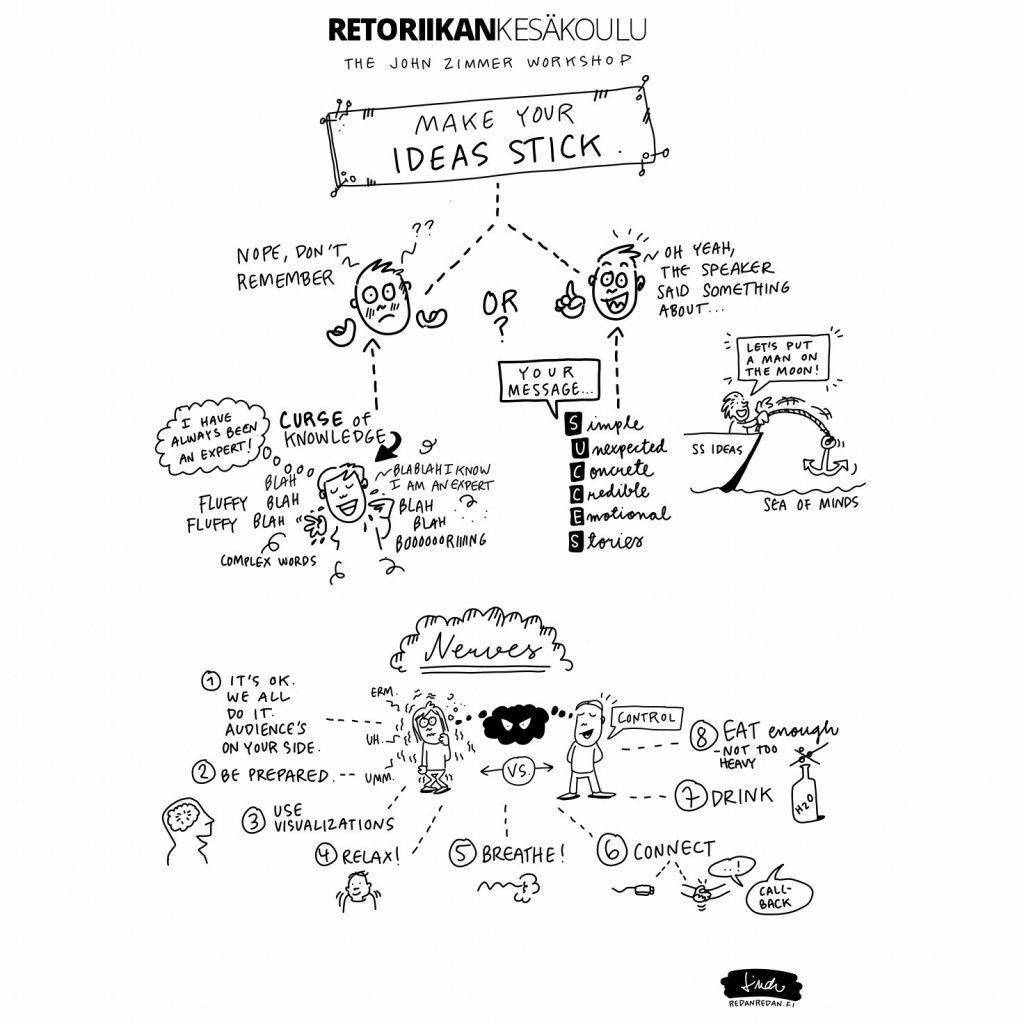 RETORIIKANKESÄKOULU
THE JOHN ZIMMER WORKSHOP
MAKE YOUR
IDEAS STICK.
NOPE, DON'T
REMEMBER
??
OR
?
OH YEAH,
THE SPEAKER
SAID SOMETHING
ABOUT...
I HAVE
ALWAYS BEEN
AN EXPERT!
CURSE of
KNOWLEDGE
BLAH
FLUFFY BLAH
FLUFFY BLAH
COMPLEX WORDS
BLABLAH I KNOW
I AM AN EXPERT
BLAH
BLAH
BOOOOOORIIING
YOUR
MESSAGE...
Simple
Unexpected
Concrete
Credible
Emotional
Stories
LET'S PUT
A MAN ON
THE MOON!
SS IDEAS
SEA OF MINDS
Nerves
1 IT'S OK.
WE ALL
DO IT.
AUDIENCE'S
ON YOUR SIDE.
2 BE PREPARED.
3 USE
VISUALIZATIONS
4 RELAX!
5 BREATHE!
6 CONNECT
...!
CALL-
BACK
7 DRINK
H2O
8 EAT enough
-NOT TOO
HEAVY
ERM.
UH.
UMM.
VS.
CONTROL
REDANREDAN.FI